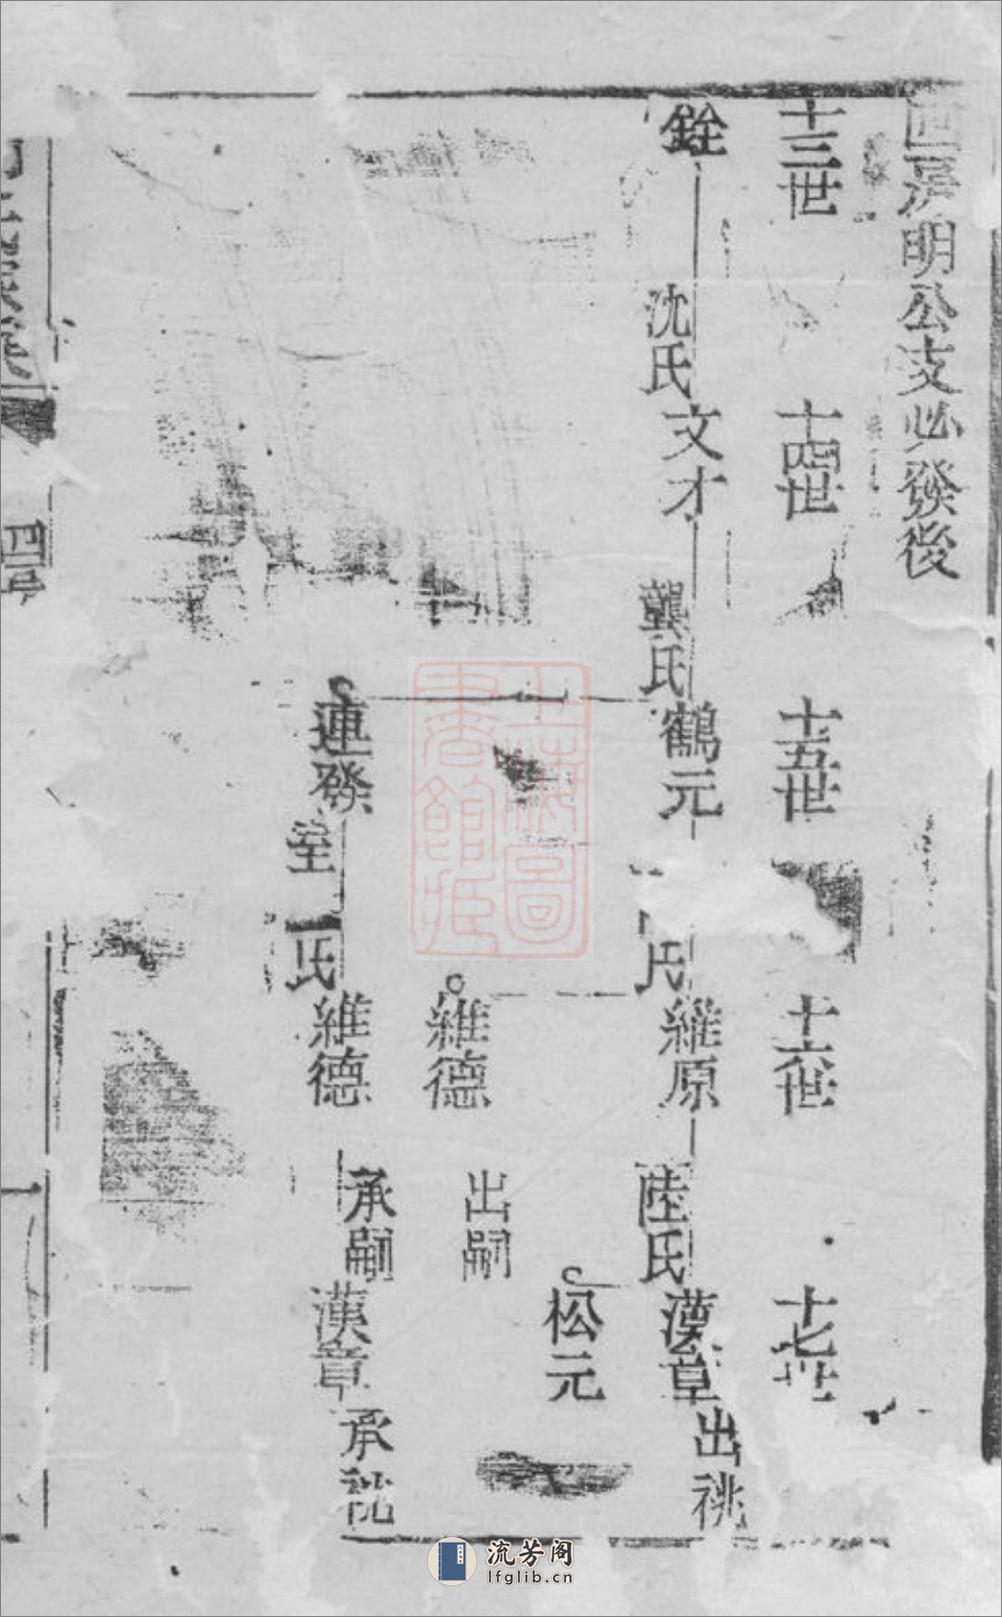 四房明公支必發後
十三世
十四世
十五世
十六世
十七世
銓
沈氏
文才
龔氏
鶴元
氏
維原
陸氏
漢章
出祧
松元
維德
出嗣
連發
至
氏
維德
承嗣
漢章
承祧
四房
一
上海圖書館藏
流芳阁
lfglib.cn